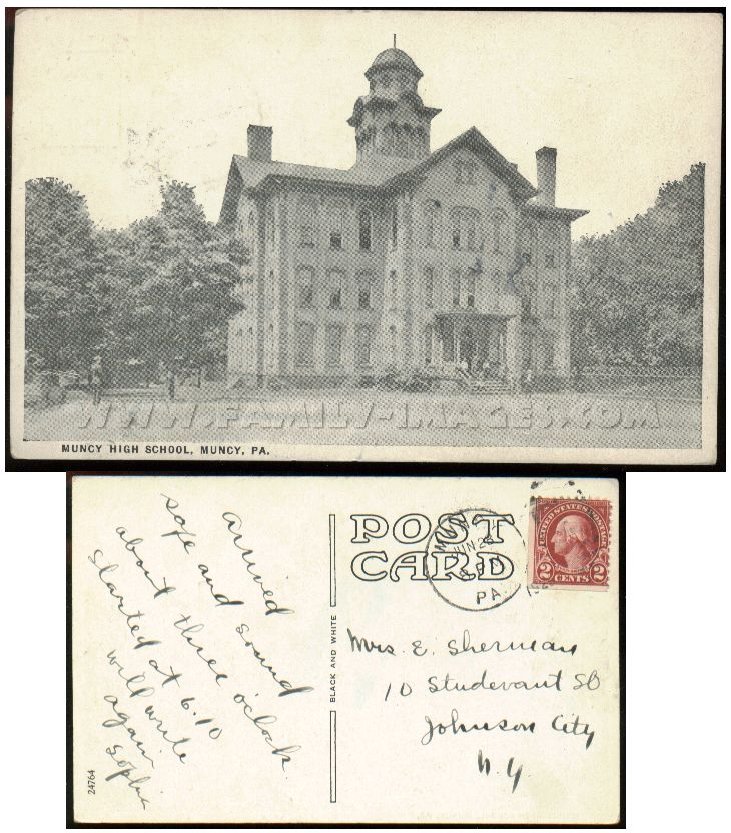 WWW.FAMILY-IMAGES.COM
MUNCY HIGH SCHOOL, MUNCY, PA.
arrived
safe and sound
about three o'clock.
started at 6.10
will write
again
Sophie
24764
BLACK AND WHITE
POST
CARD
MUNCY
JUN 25
PA.
UNITED STATES POSTAGE
2 CENTS 2
Mrs. E. Sherman
10 Studevant St
Johnson City
N.Y.